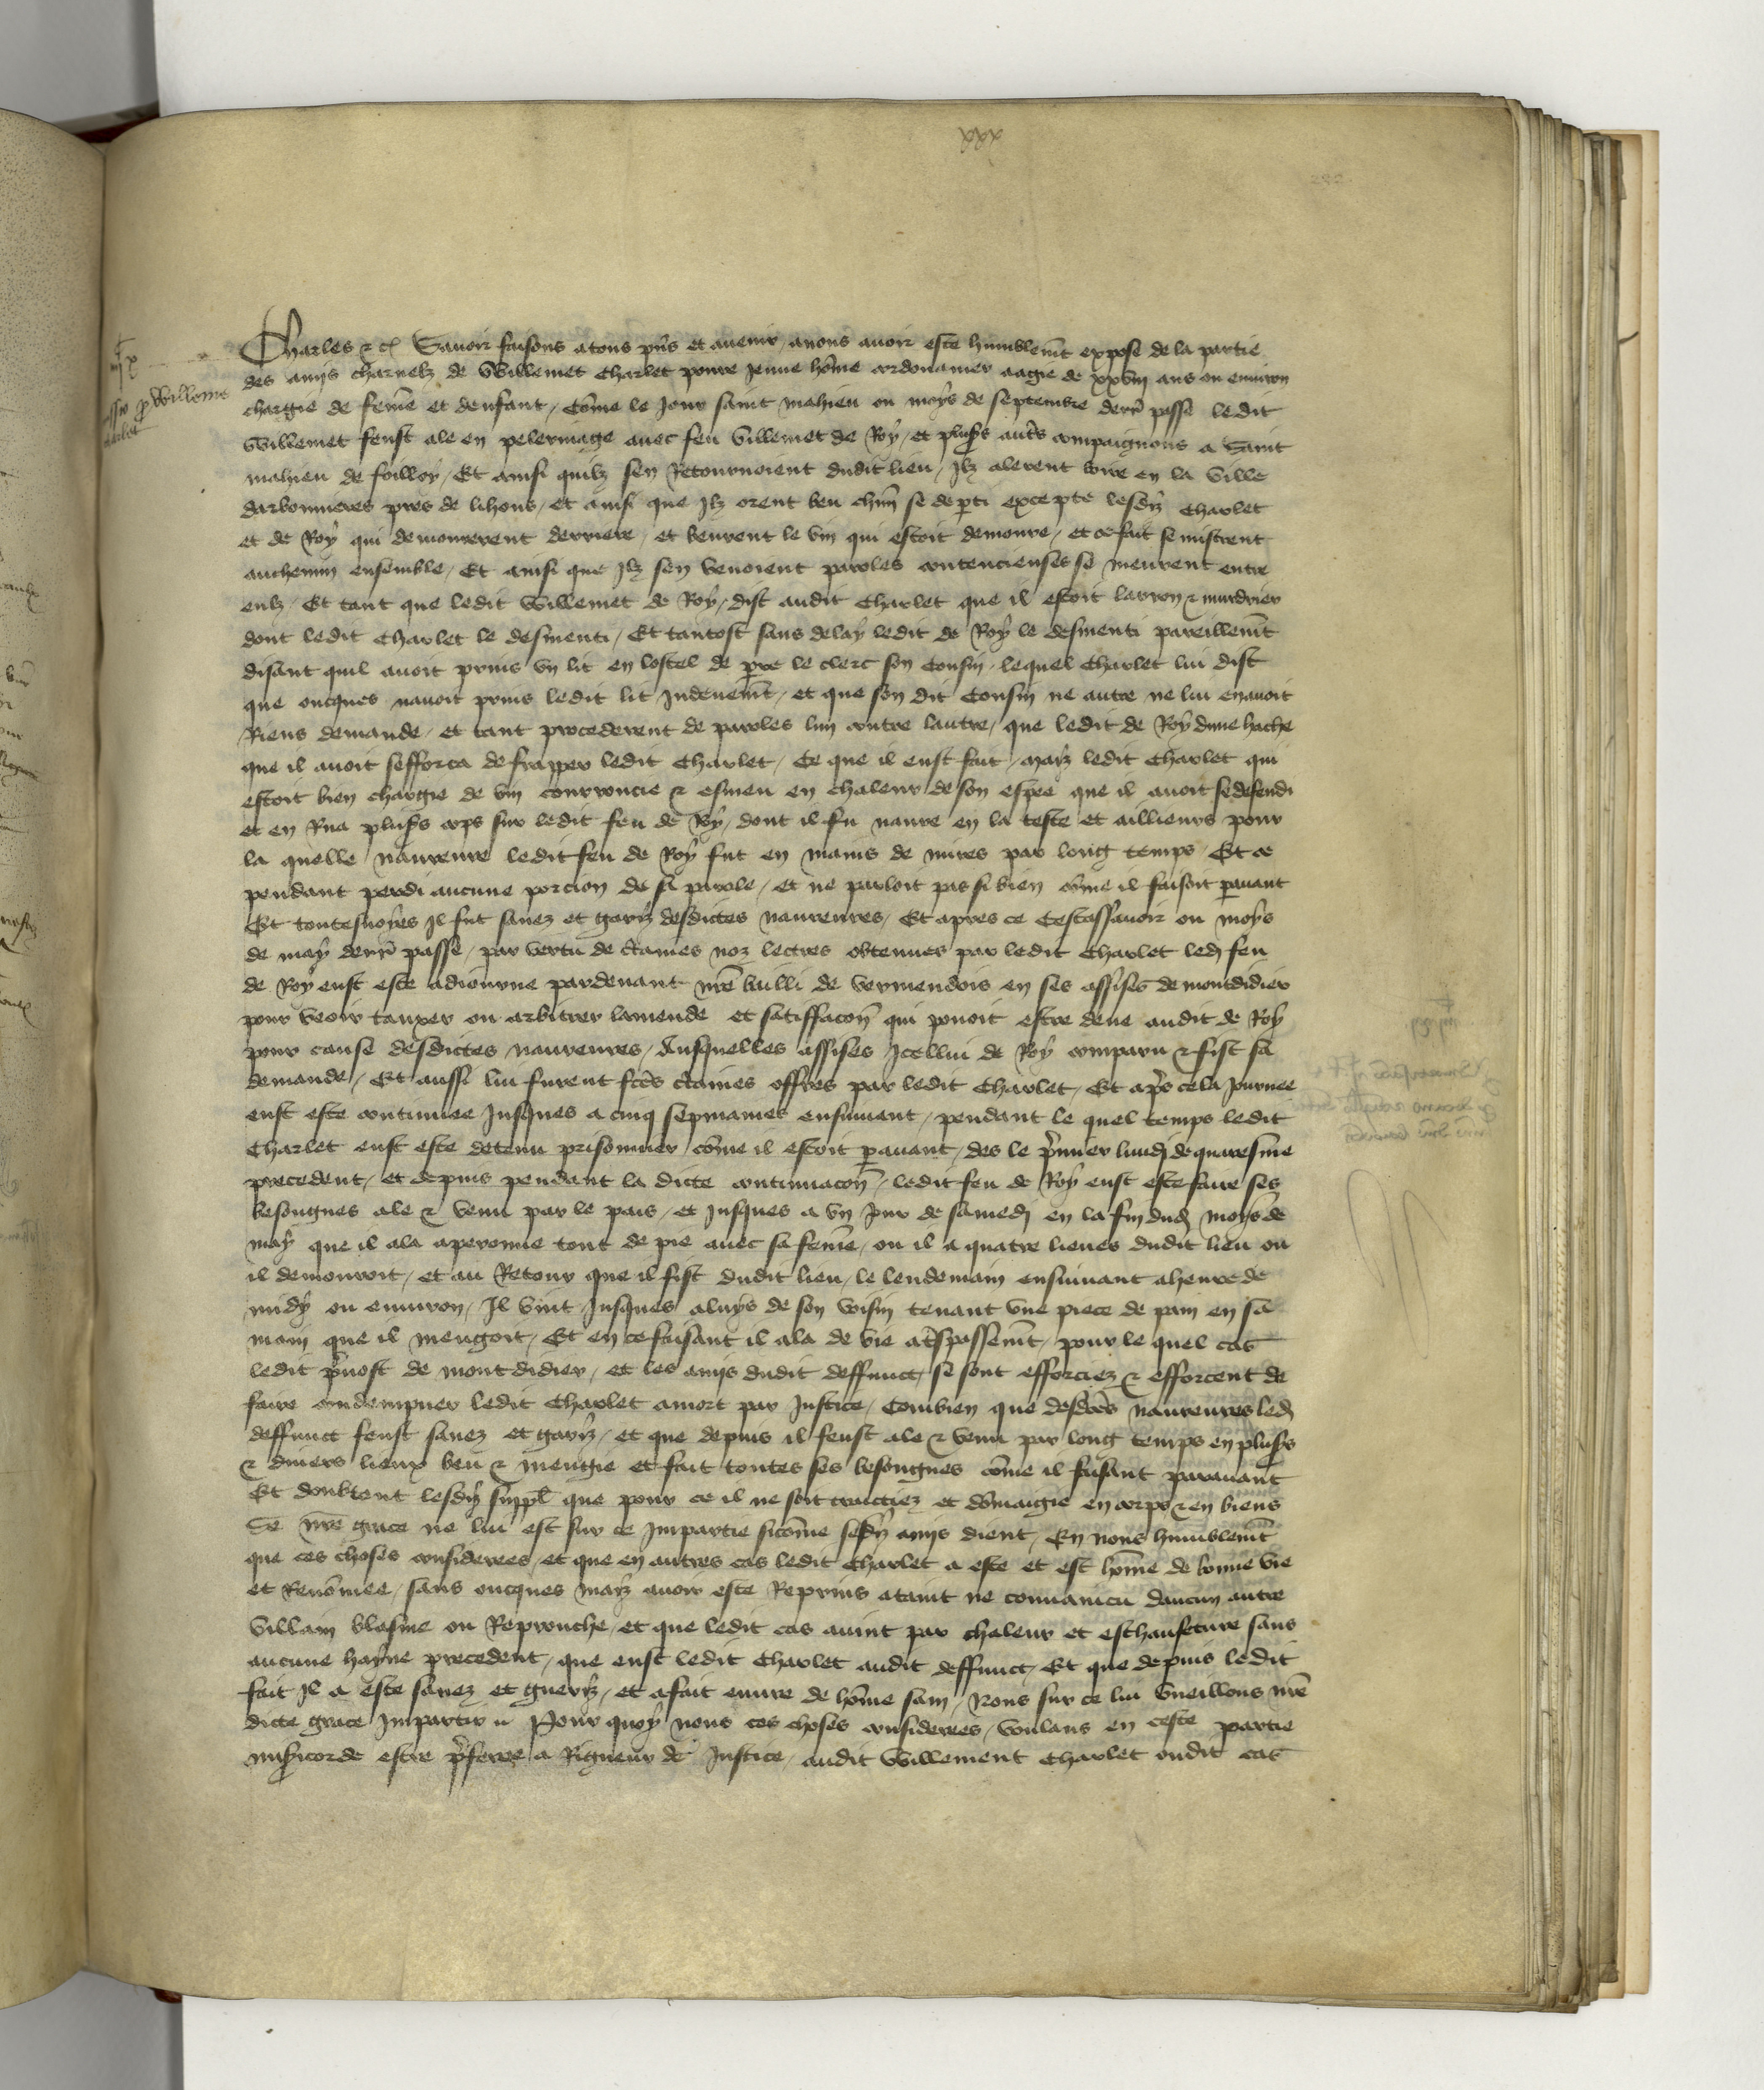 xxx
Charles &c Savoir faisons a tous pñs et avenir, a nous avoir este humblemt̃ expose de la partie
des amis charnelz de Willemet Charlet povre jeune hõme cordouanier aagie de xxviii ans ou environ
Willeme
chargie de fem̃e et denfant, Cõme le jour saint mahieu ou moys de septembre derr̃ passe ledit
Charlet
Willemet feust ale en pelerinage avec feu Villemet de Roy, et plus̃s aut̃s compaignons a Saint
mahieu de foilloy, Et ainsi quilz sen Retournoient dudit lieu, Ilz alerent boire en la Ville
darbonnieres pres de lihons, et ainsi que Ilz orent beu chũn se dep̃ti excepte lesdiz Charlet
et de Roy qui demourerent derriere, et beurent le vin qui estoit demoure, et ce fait se mistrent
au chemin ensemble, Et ainsi que Ilz sen venoient paroles contencieuses se meurent entre
eulz, Et tant que ledit Willemet de Roy, dist audit Charlet que il estoit larron & murdrier
dont ledit Charlet le desmenti, Et tantost sans delay ledit de Roy le desmenti pareillemt̃
disant quil avoit prins un lit en lostel de p̃re le clerc son Cousin, lequel Charlet lui dist
que oncques navoit prins ledit lit Indeuemt̃, et que son dit Cousin ne autre ne lui en avoit
Riens demande, et tant procederent de paroles lun contre lautre, que ledit de Roy dune hache
que il avoit sefforca de frapper ledit Charlet, Ce que il eust fait, maiz ledit Charlet qui
estoit bien chargie de vin courroucie & esmeu en chaleur de son espee que il avoit se defendi
et en Rua plus̃s cops sur ledit feu de Roy, dont il fu navre en la teste et aillieurs pour
la quelle navreure ledit feu de Roy fut en mains de mires par long temps, Et ce
pendant perdi aucune porcion de sa parole, et ne parloit pas si bien cõme il faisoit p̃avant
Et toutesvoyes Il fut sanez et gariz desdictes navreures, Et apres ce Cestassavoir ou moys
de may derr̃ passe, par vertu de c̃taines noz lectres obtenues par ledit Charlet led feu
de Roy eust este adiourne pardevant nr̃e bailli de vermendois en ses assises de montdidier
pour veoir tauxer ou arbitrer lamende et satiffacoñ qui povoit estre deue audit de Roy
pour cause desdictes navreures, Ausquelles assises Icellui de Roy comparu & fist sa
demande, Et aussi lui furent fc̃es c̃taines offres par ledit Charlet, Et ap̃s ce la Journee
eust este continuee Jusques a cinq sepmaines ensuivant, pendant le quel temps ledit
Charlet eust este detenu prisonnier, cõme il estoit p̃avant, des le p̃mier lundi de quaresme
precedent, et depuis pendant la dicte continuacoñ, ledit feu de Roy eust este faire ses
besongnes ale & venu par le pais, et jusques a un Jour de samedi en la fin dud moys de
may que il ala a peronne tout de pie avec sa fem̃e, ou il a quatre lieues dudit lieu ou
il demouroit, et au Retour que il fist dudit lieu, le lendemain ensuivant a heure de
midy ou environ, Il vint Jusques a luys de son voisin tenant une piece de pain en sa
main que il mengoit, Et en ce faisant il ala de vie a t̃spassemt̃, pour le quel cas
ledit p̃vost de montdidier, et les amis dudit deffunct, se sont efforciez & efforcent de
faire condempner ledit Charlet a mort par Justice, Combien que desdc̃es navreures led
deffunct feust sanez et gariz, et que depuis il feust ale & venu par long temps en plus̃s
& divers lieux beu & mengie et fait toutes ses besongnes cõme il faisant paravant
Et doubtent lesdiz suppl̃ que pour ce il ne soit traictiez et dõmaigie en corps & en biens
Se nr̃e grace ne lui est sur ce Impartie sicõme sesdiz amis dient, En nous humblemt̃
que ces choses considerees, et que en autres cas ledit Charlet a este et est hõme de bonne vie
et Renõmee, sans oncques maiz avoir este Reprins ataint ne convaincu daucun autre
Villain blasme ou Reprouche, et que ledit cas avint par chaleur et eschaufeture sans
aucune hayne precedent, que eust ledit Charlet audit deffunct, Et que depuis ledit
fait Il a este sanez et gueriz, et a fait euvre de hõme sain, Nous sur ce lui vueillons nr̃e
dicte grace Impartir Pour quoy nous ces choses considerees, voulans en ceste partie
mis̃icorde estre p̃feree a Rigueur de Justice, audit Willement Charlet oudit cas